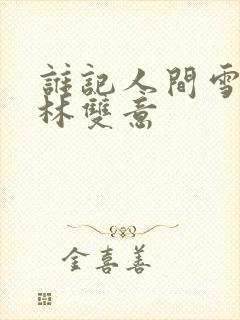 誰記人間雪
林雙意
金喜善